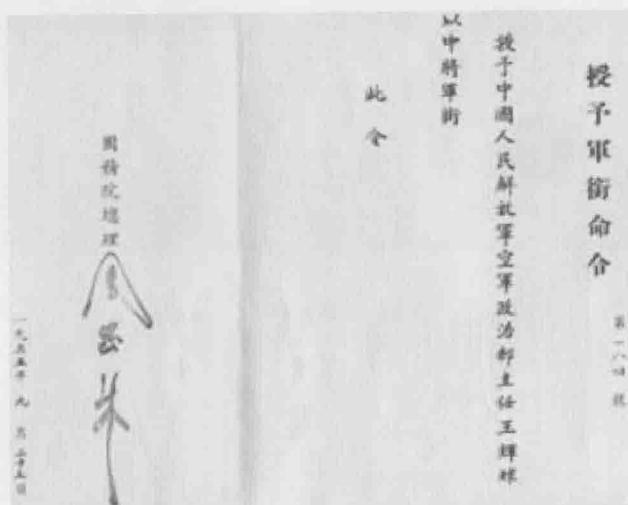 授予軍銜命令
第一八四號
授予中國人民解放軍空軍政治部主任王輝球
以中將軍銜
此令
國務院總理 周恩來
一九五五年九月